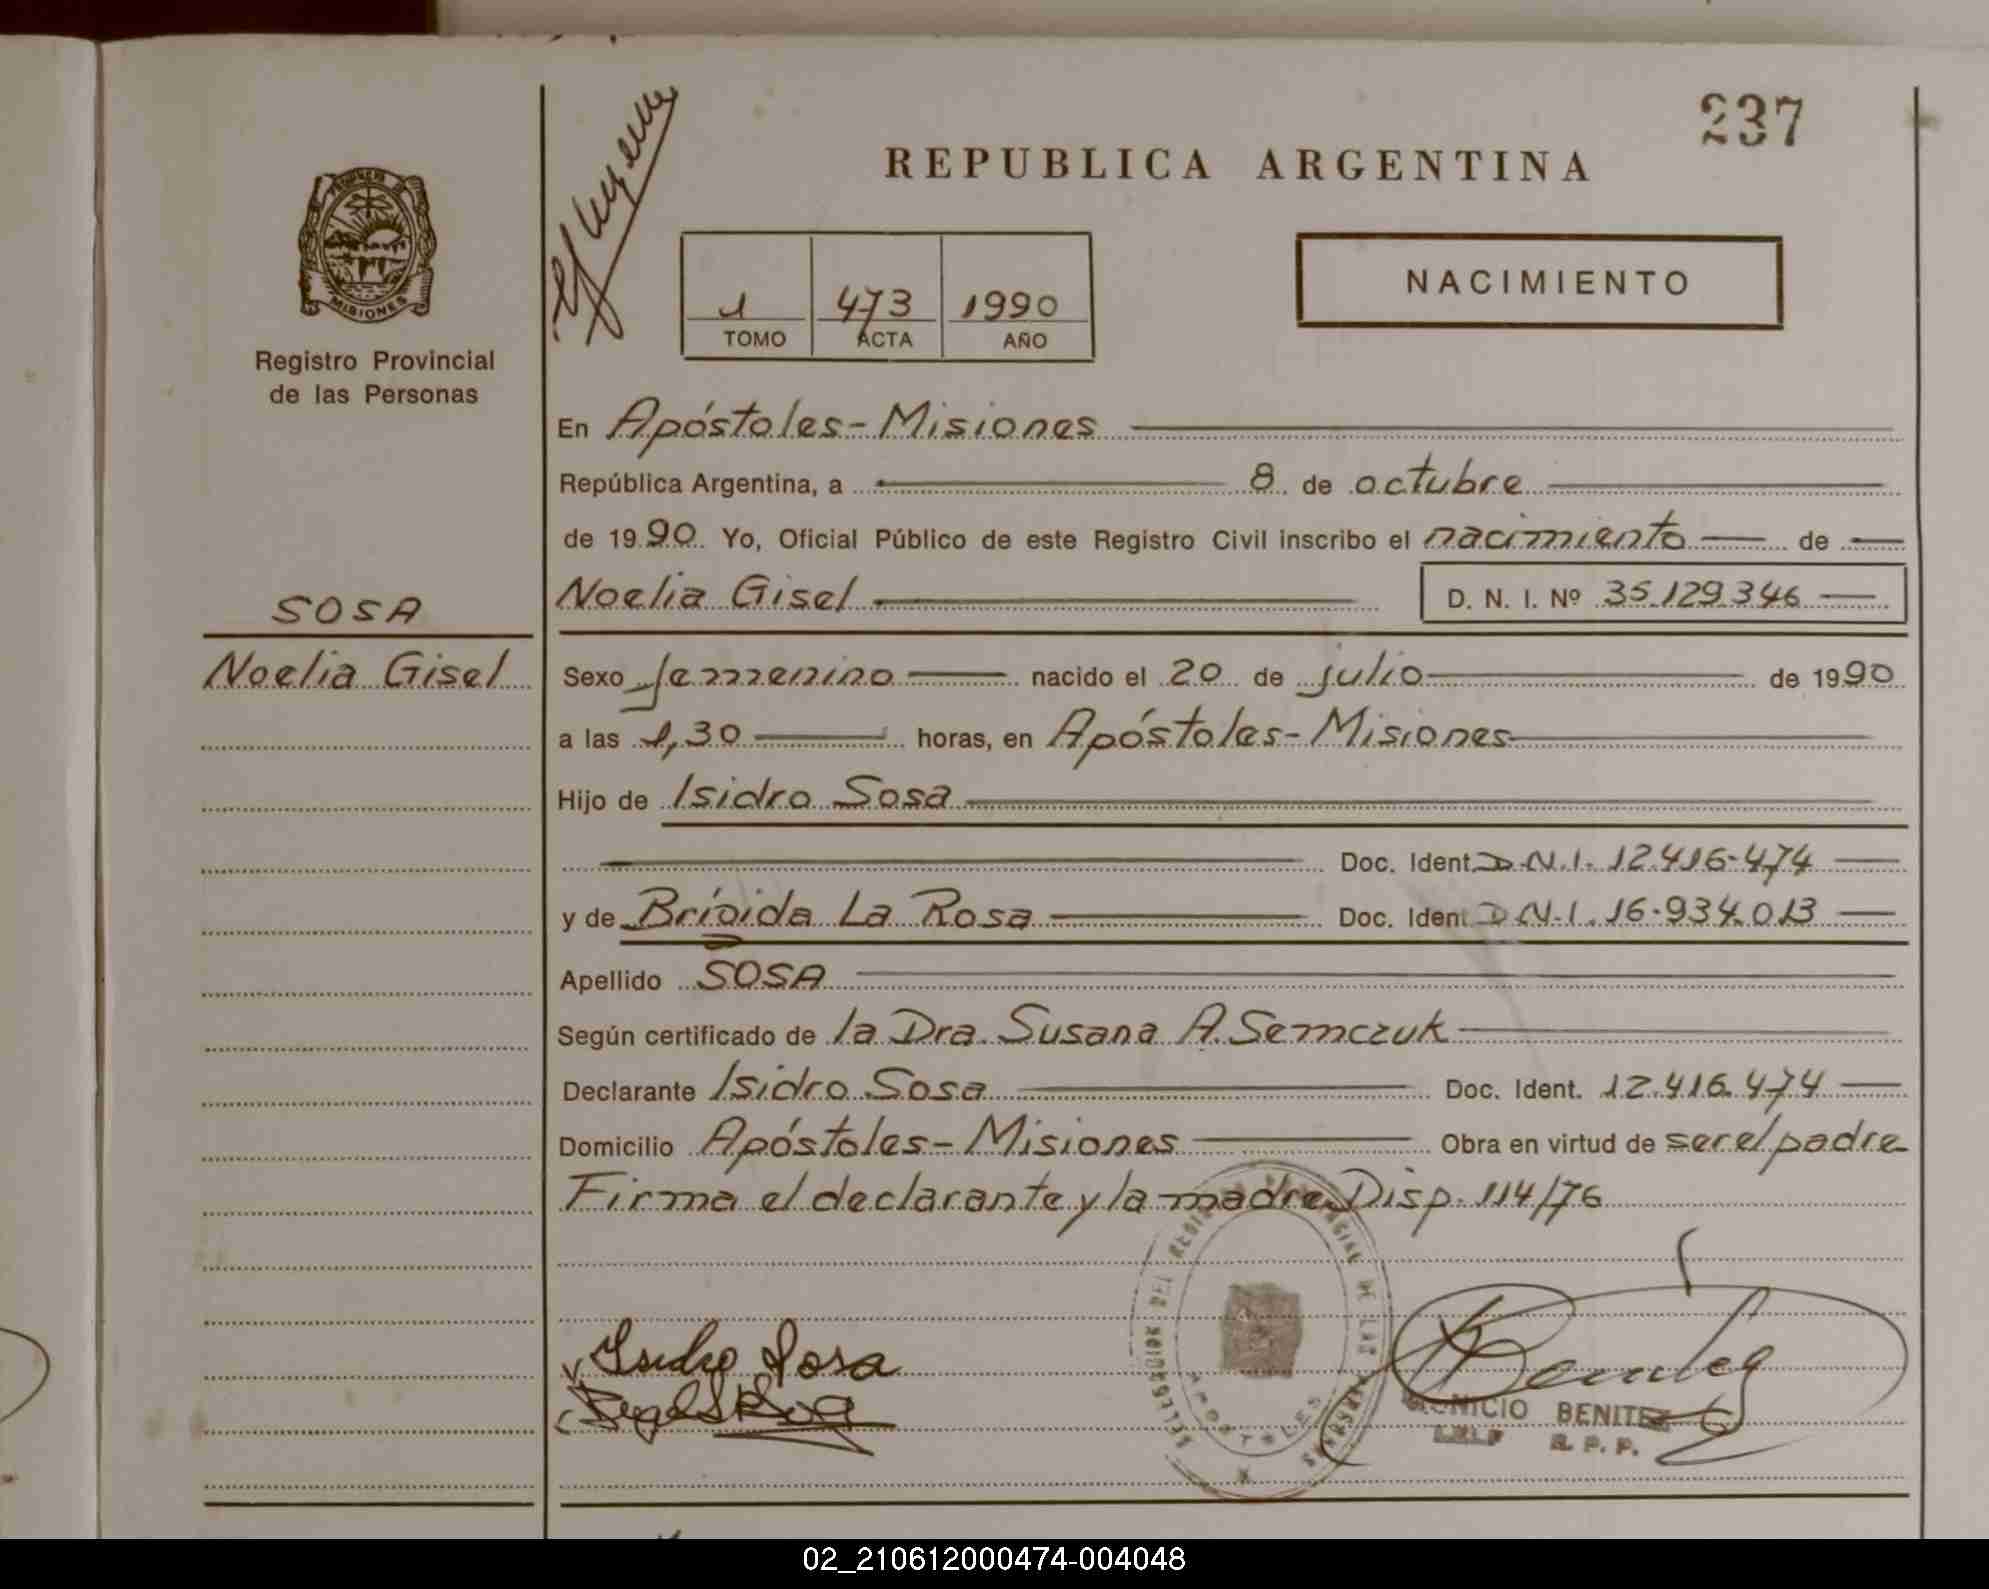 237
REPUBLICA ARGENTINA
PROVINCIA DE
MISIONES
Registro Provincial
de las Personas
1 473 1990
TOMO ACTA AÑO
NACIMIENTO
En Apóstoles-Misiones
República Argentina, a 8 de octubre
de 1990 Yo, Oficial Público de este Registro Civil inscribo el nacimiento de
SOSA
Noelia Gisel D. N. I. Nº 35.129.346
Noelia Gisel
Sexo femenino nacido el 20 de julio de 1990
a las 1,30 horas, en Apóstoles-Misiones
Hijo de Isidro Sosa
Doc. Ident. D.N.I. 12.416.474
y de Brígida La Rosa Doc. Ident. D.N.I. 16.934.013
Apellido SOSA
Según certificado de la Dra. Susana A. Semczuk
Declarante Isidro Sosa Doc. Ident. 12.416.474
Domicilio Apóstoles-Misiones Obra en virtud de ser el padre
Firma el declarante y la madre Disp. 114/76
DEL REGISTRO PROVINCIAL DE LAS PERSONAS
APOSTOLES
Isidro Sosa
BENITEZ
R. P. P.
02_210612000474-004048